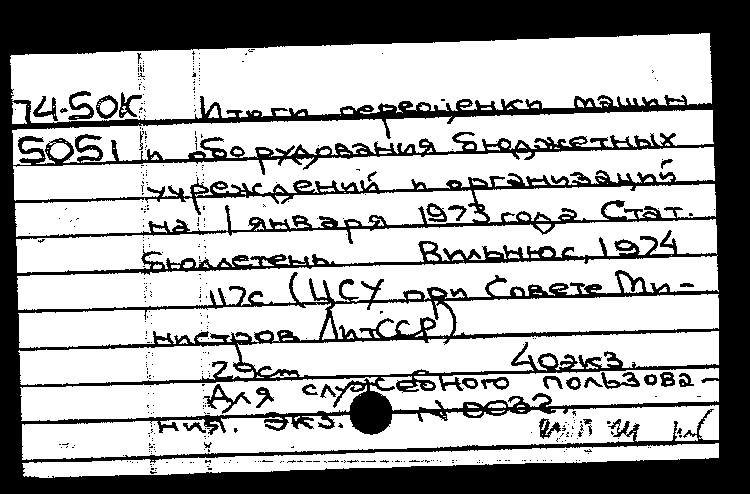 74-50К Итоги переоценки машин
5051 и оборудования бюджетных
учреждений и организаций
на 1 января 1973 года. Стат.
бюллетень. Вильнюс, 1974
117с. (ЦСУ при Совете Ми-
нистров ЛитССР).
29см. 40экз.
Для служебного пользова-
ния. Экз. N 0032.